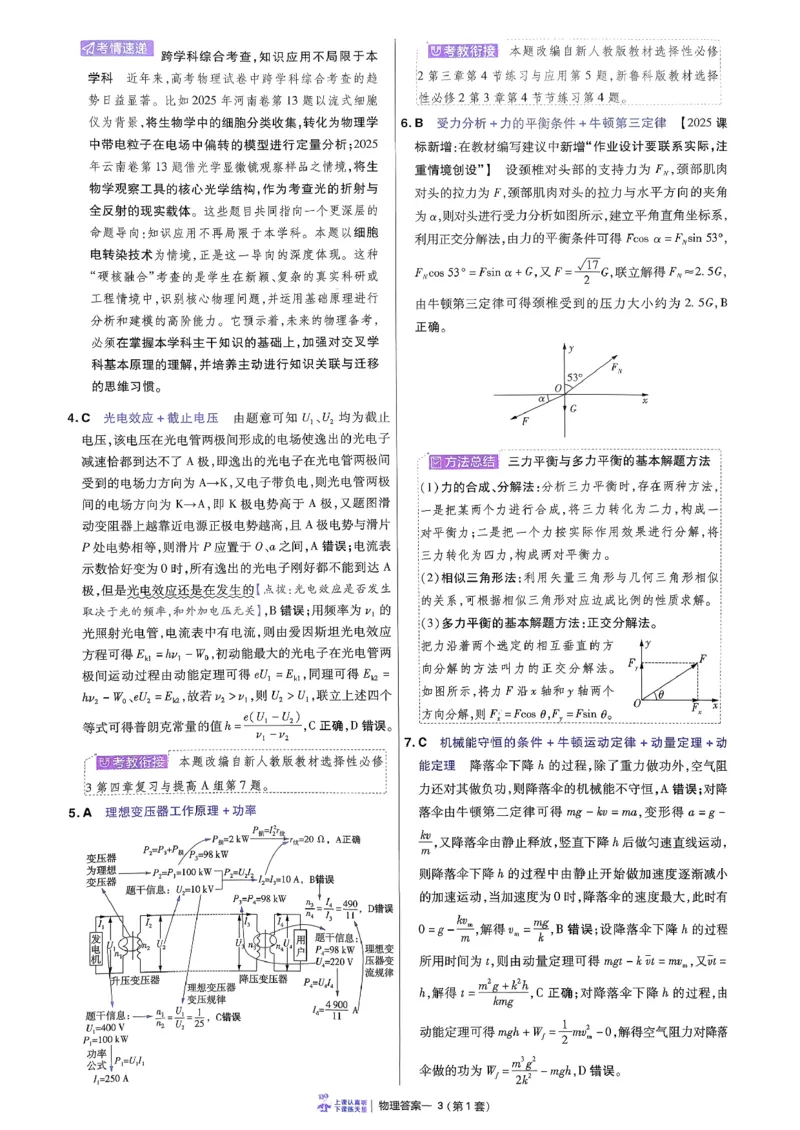 考情速递 跨学科综合考查,知识应用不局限于本
学科 近年来,高考物理试卷中跨学科综合考查的趋
势日益显著。比如2025年河南卷第13题以流式细胞
仪为背景,将生物学中的细胞分类收集,转化为物理学
中带电粒子在电场中偏转的模型进行定量分析;2025
年云南卷第13题借光学显微镜观察样品之情境,将生
物学观察工具的核心光学结构,作为考查光的折射与
全反射的现实载体。这些题目共同指向一个更深层的
命题导向:知识应用不再局限于本学科。本题以细胞
电转染技术为情境,正是这一导向的深度体现。这种
“硬核融合”考查的是学生在新颖、复杂的真实科研或
工程情境中,识别核心物理问题,并运用基础原理进行
分析和建模的高阶能力。它预示着,未来的物理备考,
必须在掌握本学科主干知识的基础上,加强对交叉学
科基本原理的理解,并培养主动进行知识关联与迁移
的思维习惯。
4.C 光电效应+截止电压 由题意可知 U₁、U₂ 均为截止
电压,该电压在光电管两极间形成的电场使逸出的光电子
减速恰都到达不了 A 极,即逸出的光电子在光电管两极间
受到的电场力方向为 A→K,又电子带负电,则光电管两极
间的电场方向为 K→A,即 K 极电势高于 A 极,又题图滑
动变阻器上越靠近电源正极电势越高,且 A 极电势与滑片
P 处电势相等,则滑片 P 应置于 O、a 之间,A 错误;电流表
示数恰好变为0时,所有逸出的光电子刚好都不能到达 A
极,但是光电效应还是在发生的【点拨:光电效应是否发生
取决于光的频率,和外加电压无关】,B 错误;用频率为 ν₁ 的
光照射光电管,电流表中有电流,则由爱因斯坦光电效应
方程可得 Eₖ₁=hν₁-W₀,初动能最大的光电子在光电管两
极间运动过程由动能定理可得 eU₁=Eₖ₁,同理可得 Eₖ₂=
hν₂-W₀、eU₂=Eₖ₂,故若 ν₂>ν₁,则 U₂>U₁,联立上述四个
等式可得普朗克常量的值 h=e(U₁-U₂)/(ν₁-ν₂),C 正确,D 错误。
考教衔接 本题改编自新人教版教材选择性必修
3 第四章复习与提高 A 组第 7 题。
5.A 理想变压器工作原理+功率
P损=I₂²r线
P损=2 kW
r线=20 Ω, A正确
P₂=P₃+P损
P₃=98 kW
变压器
为理想
变压器
P₂=P₁=100 kW
P₂=U₂I₂
I₂=I₃=10 A, B错误
题干信息: U₂=10 kV
P₃=P₄=98 kW
n₃/n₄=I₄/I₃=490/11, D错误
I₁
I₂
I₃
I₄
发电机
U₁
n₁
n₂
U₂
U₃
n₃
n₄
U₄
用户
题干信息:
P₄=98 kW
U₄=220 V
理想变
压器变
流规律
升压变压器
降压变压器
P₄=U₄I₄
理想变压器
变压规律
I₄=4 900/11 A
题干信息:
U₁=400 V
P₁=100 kW
n₁/n₂=U₁/U₂=1/25, C错误
功率
公式
P₁=U₁I₁
I₁=250 A
考教衔接 本题改编自新人教版教材选择性必修
2 第三章第 4 节练习与应用第 5 题,新鲁科版教材选择
性必修 2 第 3 章第 4 节节练习第 4 题。
6.B 受力分析+力的平衡条件+牛顿第三定律 【2025 课
标新增:在教材编写建议中新增“作业设计要联系实际,注
重情境创设”】 设颈椎对头部的支持力为 F_N,颈部肌肉
对头的拉力为 F,颈部肌肉对头的拉力与水平方向的夹角
为 α,则对头进行受力分析如图所示,建立平角直角坐标系,
利用正交分解法,由力的平衡条件可得 Fcos α=F_Nsin 53°,
F_Ncos 53°=Fsin α+G,又 F=√17/2 G,联立解得 F_N≈2.5G,
由牛顿第三定律可得颈椎受到的压力大小约为 2.5G,B
正确。
y
F_N
53°
O
α
x
F
G
方法总结 三力平衡与多力平衡的基本解题方法
(1)力的合成、分解法:分析三力平衡时,存在两种方法,
一是把某两个力进行合成,将三力转化为二力,构成一
对平衡力;二是把一个力按实际作用效果进行分解,将
三力转化为四力,构成两对平衡力。
(2)相似三角形法:利用矢量三角形与几何三角形相似
的关系,可根据相似三角形对应边成比例的性质求解。
(3)多力平衡的基本解题方法:正交分解法。
把力沿着两个选定的相互垂直的方
向分解的方法叫力的正交分解法。
如图所示,将力 F 沿 x 轴和 y 轴两个
方向分解,则 Fₓ=Fcos θ,F_y=Fsin θ。
y
F_y
F
θ
O
Fₓ
x
7.C 机械能守恒的条件+牛顿运动定律+动量定理+动
能定理 降落伞下降 h 的过程,除了重力做功外,空气阻
力还对其做负功,则降落伞的机械能不守恒,A 错误;对降
落伞由牛顿第二定律可得 mg-kv=ma,变形得 a=g-
kv/m,又降落伞由静止释放,竖直下降 h 后做匀速直线运动,
则降落伞下降 h 的过程中由静止开始做加速度逐渐减小
的加速运动,当加速度为 0 时,降落伞的速度最大,此时有
0=g-kvₘ/m,解得 vₘ=mg/k,B 错误;设降落伞下降 h 的过程
所用时间为 t,则由动量定理可得 mgt-k v̄t=mvₘ,又v̄t=
h,解得 t=(m²g+k²h)/kmg,C 正确;对降落伞下降 h 的过程,由
动能定理可得 mgh+W_f=1/2 mvₘ²-0,解得空气阻力对降落
伞做的功为 W_f=m³g²/2k²-mgh,D 错误。
上课认真听
下课练天星
物理答案一 3(第1套)